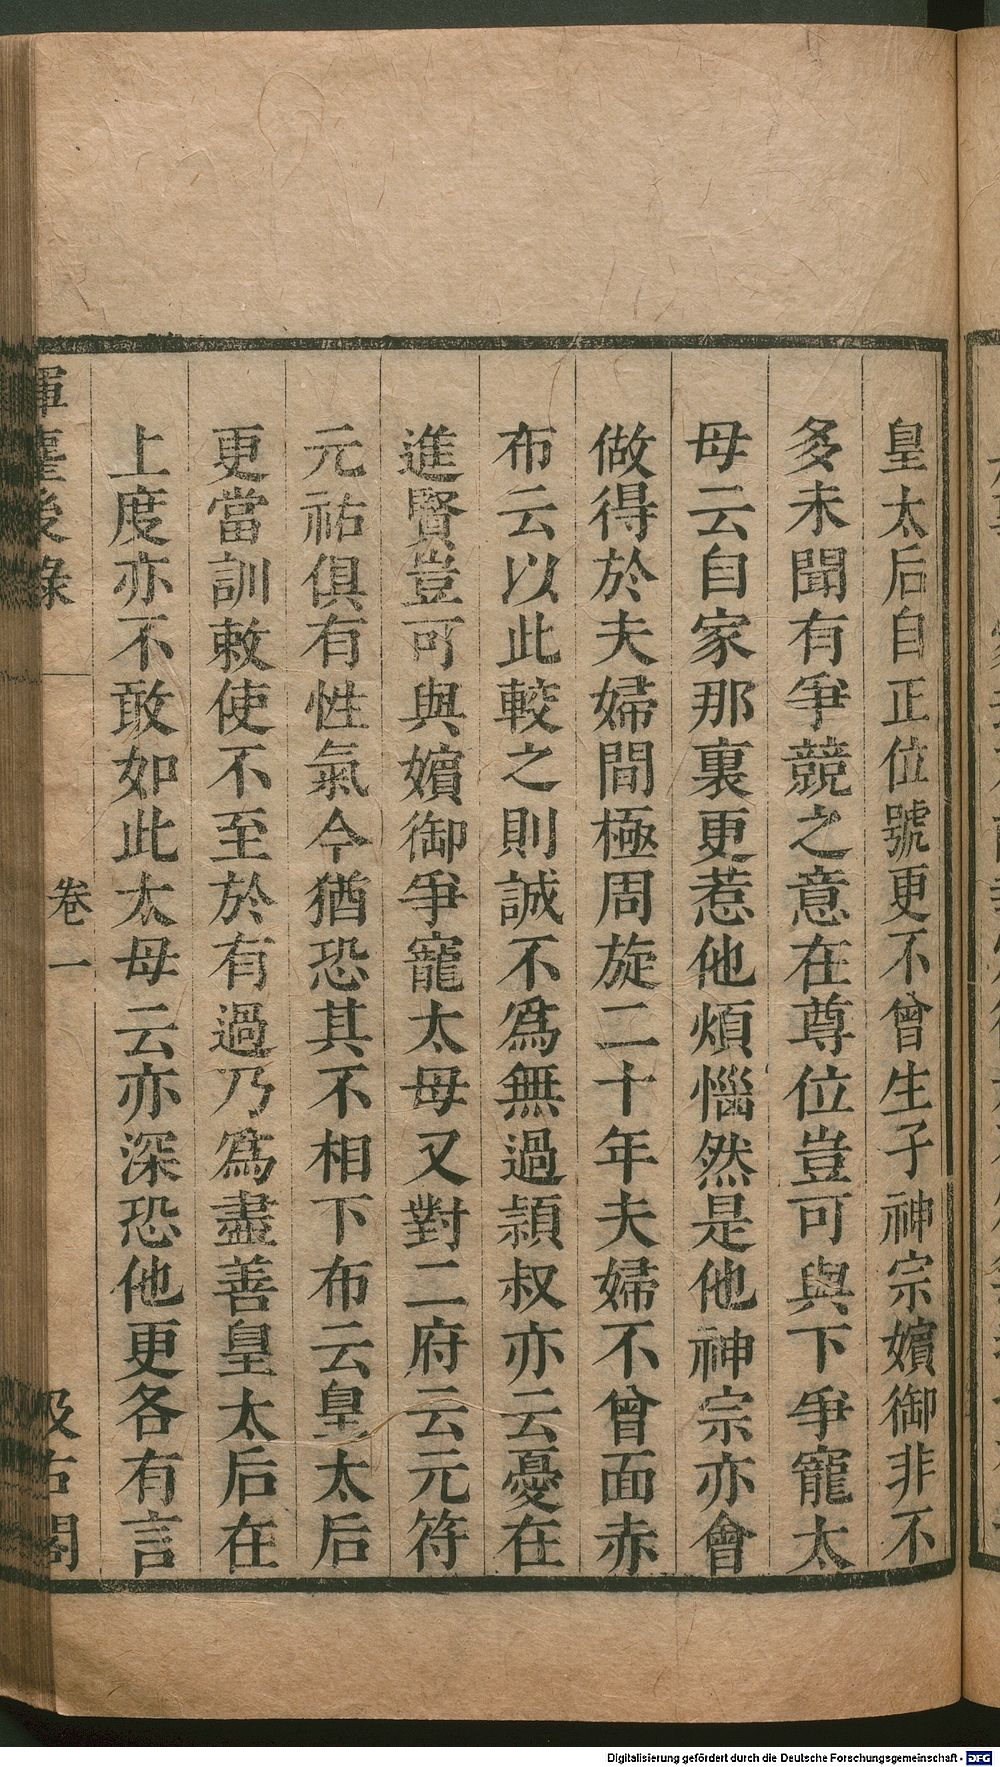 皇太后自正位號更不曾生子神宗嬪御非不
多未聞有爭競之意在尊位豈可與下爭寵太
母云自家那裏更惹他煩惱然是他神宗亦會
做得於夫婦間極周旋二十年夫婦不曾面赤
布云以此較之則誠不為無過頴叔亦云憂在
進賢豈可與嬪御爭寵太母又對二府云元符
元祐俱有性氣今猶恐其不相下布云皇太后
更當訓敕使不至於有過乃為盡善皇太后在
上度亦不敢如此太母云亦深恐他更各有言
揮麈後錄
卷一
汲古閣
Digitalisierung gefördert durch die Deutsche Forschungsgemeinschaft - DFG